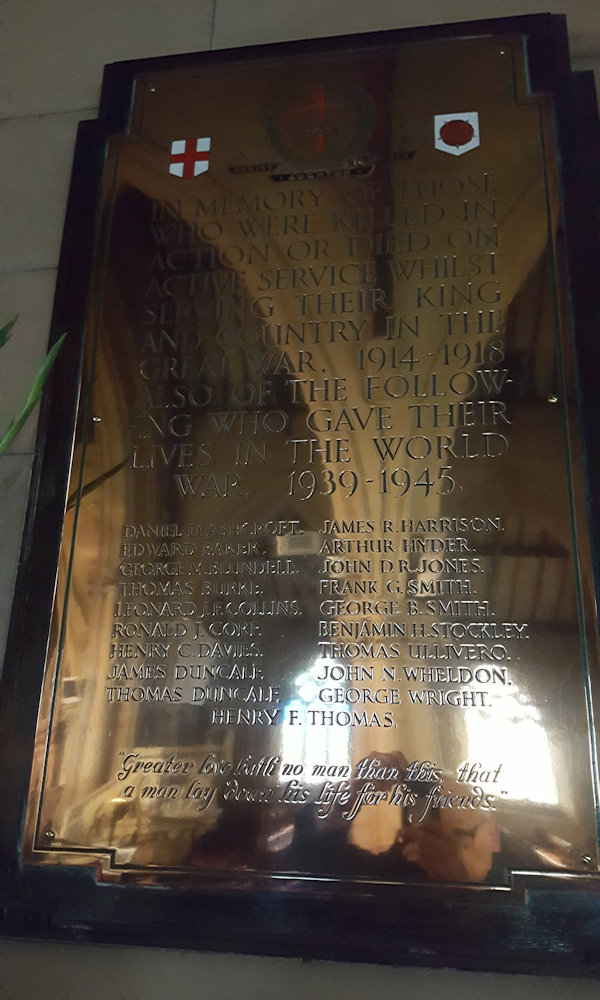 CHRIST CHURCH
AUGHTON
IN MEMORY OF THOSE
WHO WERE KILLED IN
ACTION OR DIED ON
ACTIVE SERVICE WHILST
SERVING THEIR KING
AND COUNTRY IN THE
GREAT WAR, 1914-1918
ALSO OF THE FOLLOW-
ING WHO GAVE THEIR
LIVES IN THE WORLD
WAR, 1939-1945.
DANIEL D. ASHCROFT. JAMES R. HARRISON.
EDWARD BAKER. ARTHUR HYDER.
GEORGE M. BLUNDELL. JOHN D. R. JONES.
THOMAS BURKE. FRANK G. SMITH.
LEONARD J. F. COLLINS. GEORGE B. SMITH.
RONALD J. CORF. BENJAMIN H. STOCKLEY.
HENRY C. DAVIES. THOMAS ULLIVERO.
JAMES DUNCALF. JOHN N. WHELDON.
THOMAS DUNCALF. GEORGE WRIGHT.
HENRY F. THOMAS.
"Greater love hath no man than this, that
a man lay down his life for his friends."